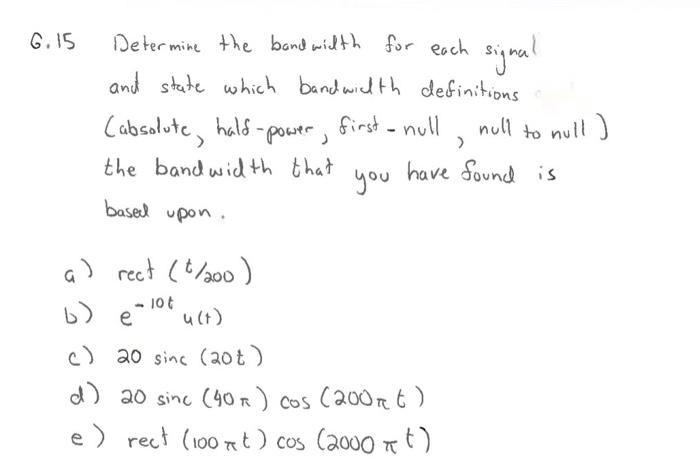 6.15 Determine the bandwidth for each signal
and state which bandwidth definitions
(absolute, half-power, first-null, null to null)
the bandwidth that you have found is
based upon.
a) rect (t/200)
b) e^-10t u(t)
c) 20 sinc (20t)
d) 20 sinc (40π) cos (200πt)
e) rect (100πt) cos (2000πt)